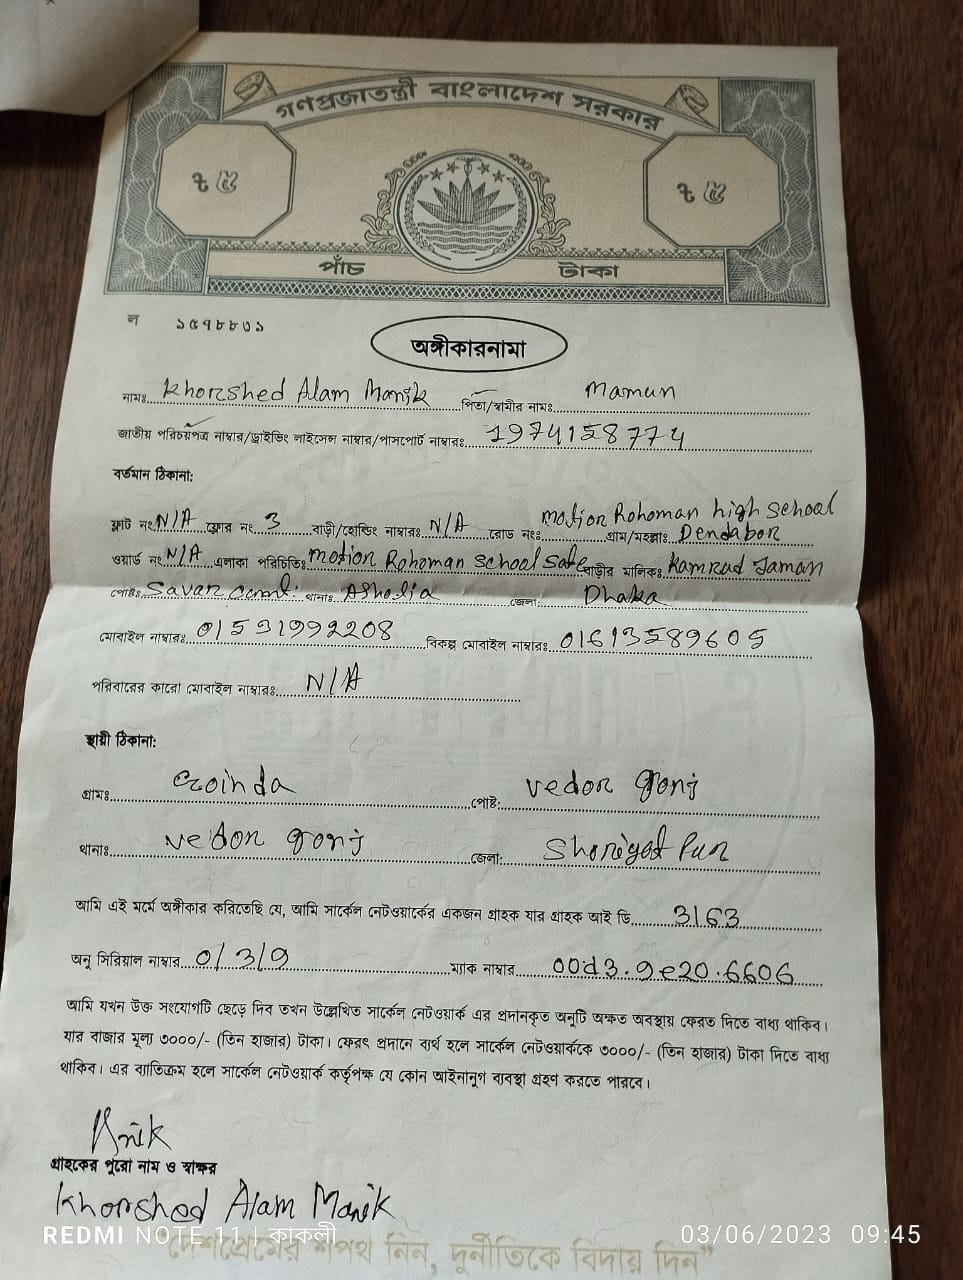 গণপ্রজাতন্ত্রী বাংলাদেশ সরকার
৳ ৫ ৳ ৫
পাঁচ টাকা
অঙ্গীকারনামা
নামঃ Khorshed Alam Manik পিতা/স্বামীর নামঃ Mamun
জাতীয় পরিচয়পত্র নাম্বার/ড্রাইভিং লাইসেন্স নাম্বার/পাসপোর্ট নাম্বারঃ 1974158774
বর্তমান ঠিকানা:
ফ্লাট নং N/A ফ্লোর নং 3 বাড়ী/হোল্ডিং নাম্বারঃ N/A রোড নংঃ motion Rohoman high school গ্রাম/মহল্লাঃ Dendabor
ওয়ার্ড নং N/A এলাকা পরিচিতিঃ motion Rohoman school বাড়ীর মালিকঃ Kamrud Jaman
পোষ্টঃ Savar থানাঃ Asholia জেলা: Dhaka
মোবাইল নাম্বারঃ 01531992208 বিকল্প মোবাইল নাম্বারঃ 01613589605
পরিবারের কারো মোবাইল নাম্বারঃ N/A
স্থায়ী ঠিকানা:
গ্রামঃ পোষ্ট: vedor gonj
থানাঃ vedor gonj জেলা: Shoriyot Pur
আমি এই মর্মে অঙ্গীকার করিতেছি যে, আমি সার্কেল নেটওয়ার্কের একজন গ্রাহক যার গ্রাহক আই ডি 3163
অনু সিরিয়াল নাম্বার 01319 ম্যাক নাম্বার 00d3.9e20.6606
আমি যখন উক্ত সংযোগটি ছেড়ে দিব তখন উল্লেখিত সার্কেল নেটওয়ার্ক এর প্রদানকৃত অনুটি অক্ষত অবস্থায় ফেরত দিতে বাধ্য থাকিব।
যার বাজার মূল্য ৩০০০/- (তিন হাজার) টাকা। ফেরৎ প্রদানে ব্যর্থ হলে সার্কেল নেটওয়ার্ককে ৩০০০/- (তিন হাজার) টাকা দিতে বাধ্য
থাকিব। এর ব্যতিক্রম হলে সার্কেল নেটওয়ার্ক কর্তৃপক্ষ যে কোন আইনানুগ ব্যবস্থা গ্রহণ করতে পারবে।
গ্রাহকের পুরো নাম ও স্বাক্ষর
Khorshed Alam Manik
REDMI NOTE 11 | কাকলী 03/06/2023 09:45
"দেশপ্রেমের শপথ নিন, দুর্নীতিকে বিদায় দিন"